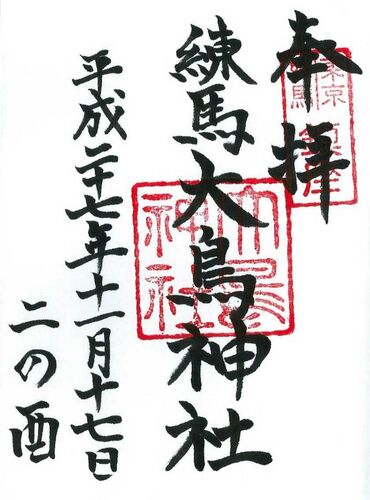 奉拝
練馬大鳥神社
平成二十七年十一月十七日
二の酉
大鳥神社